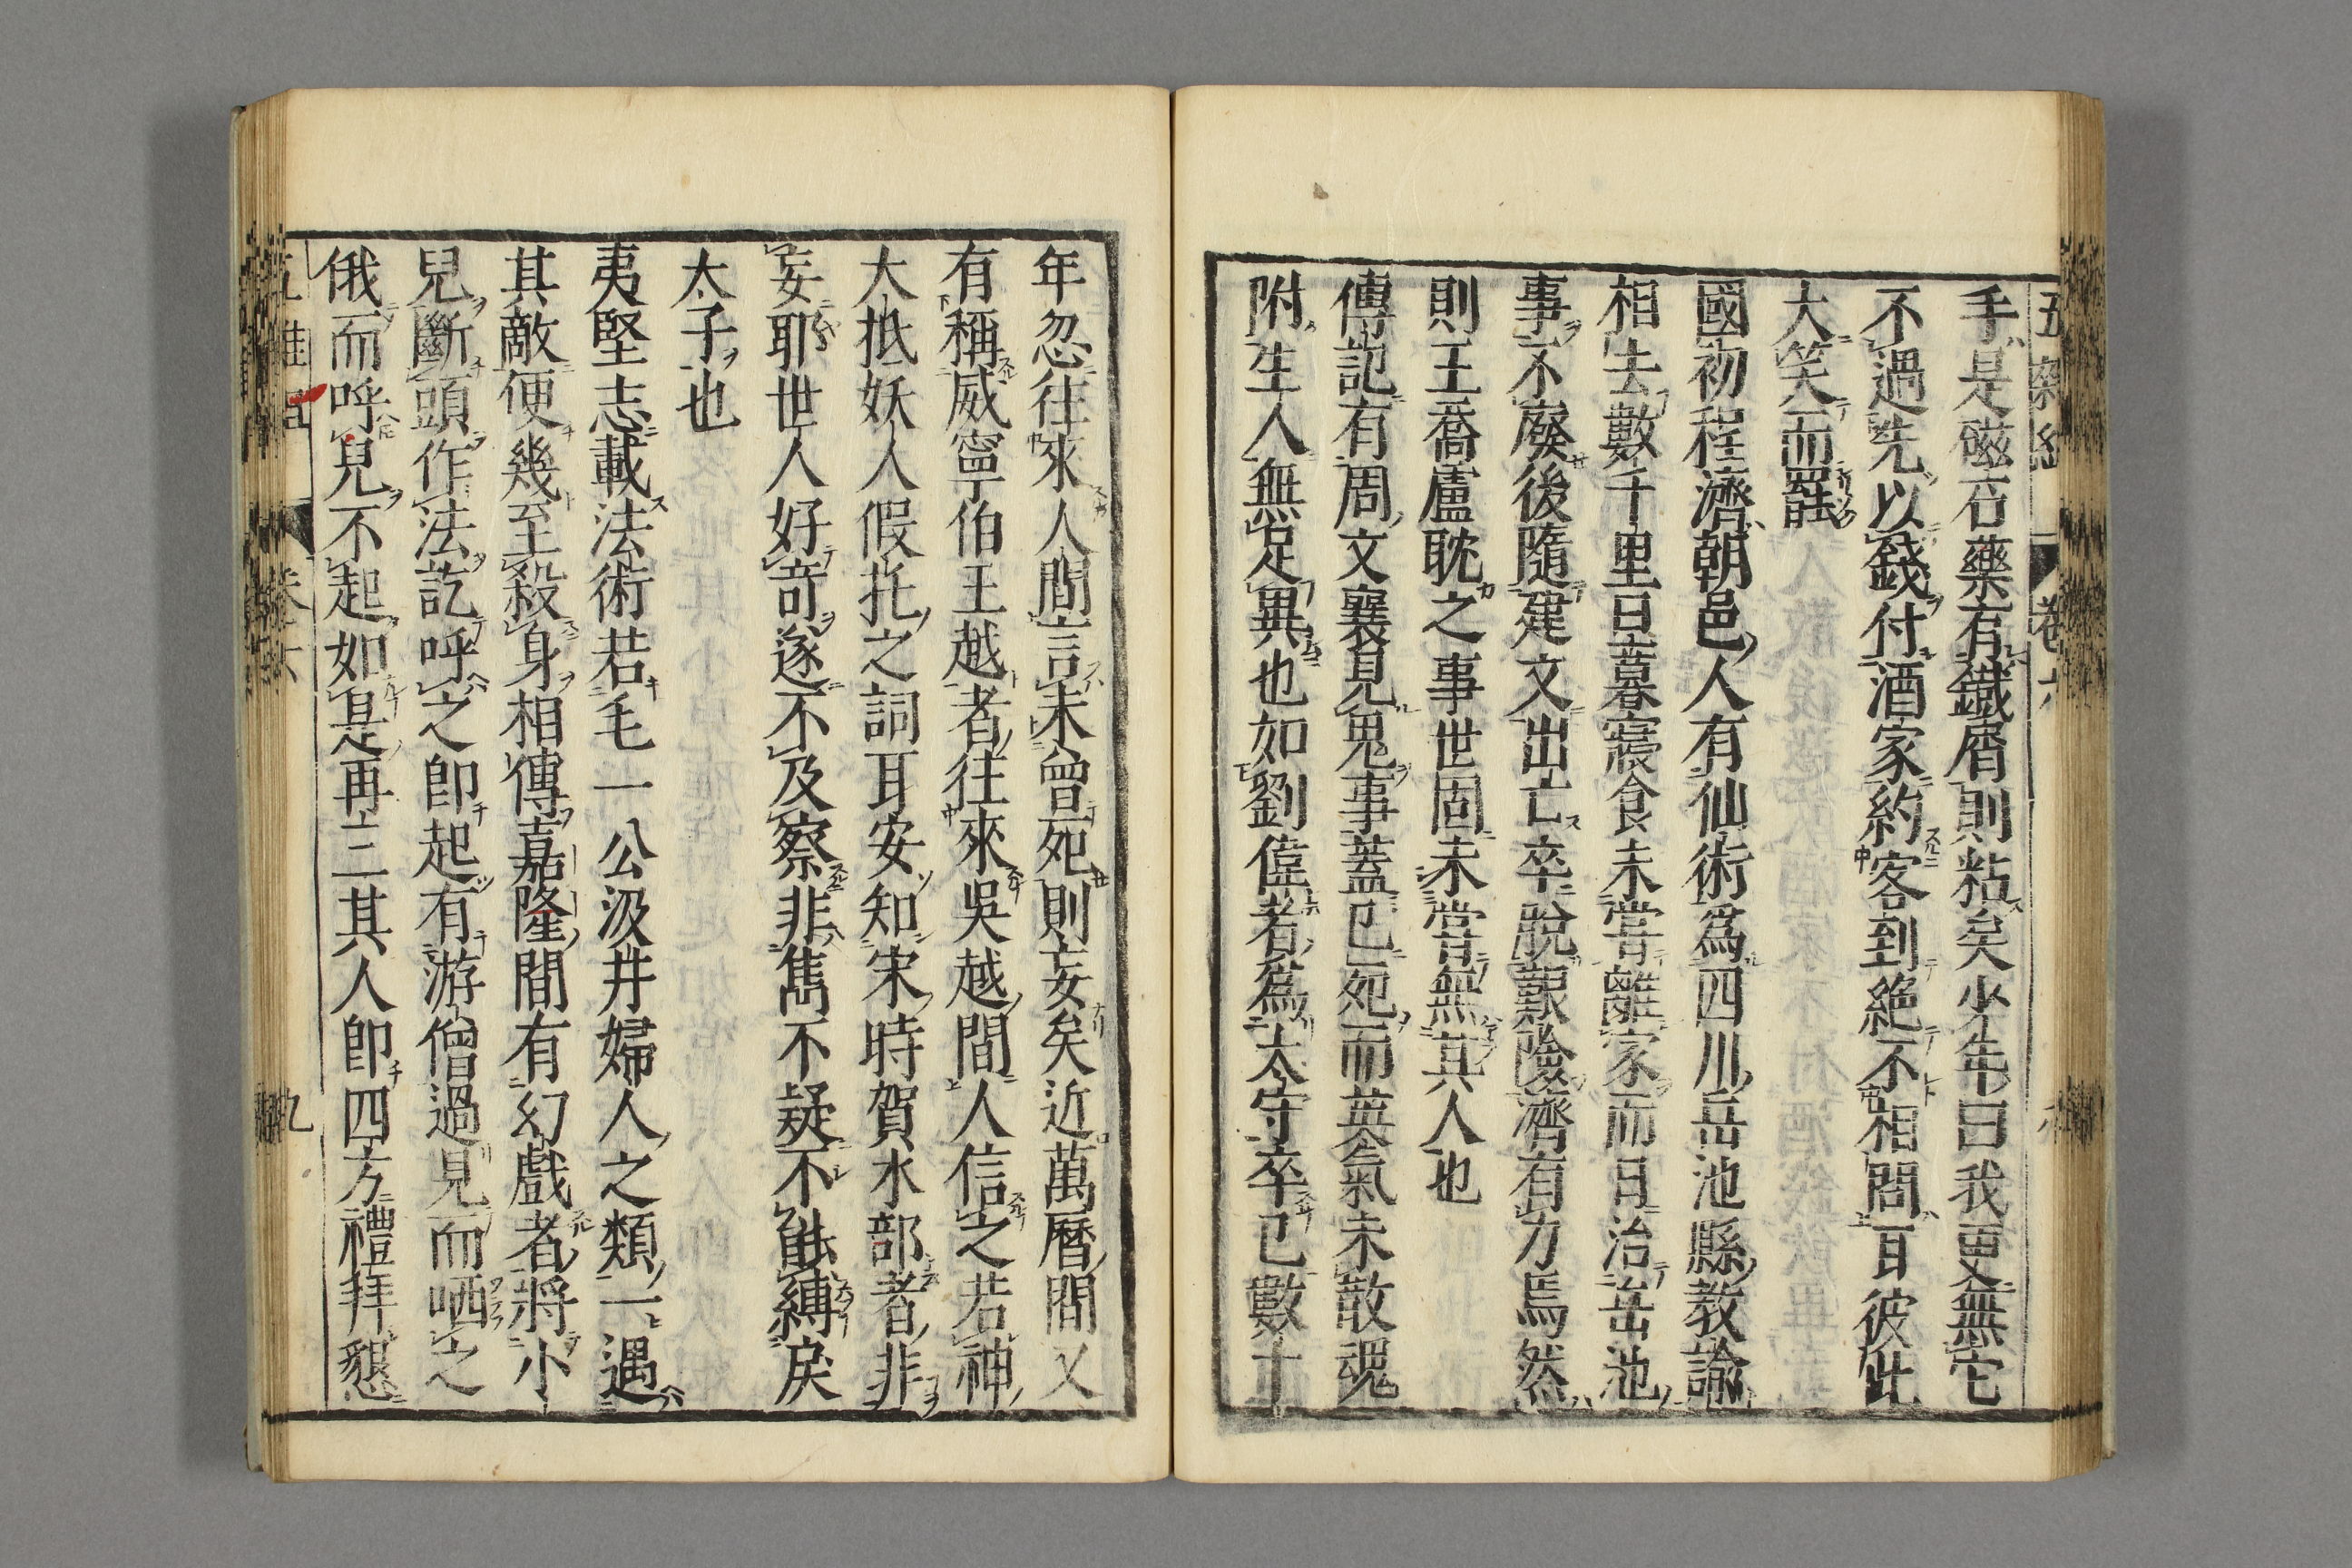 手是磁石藥有鐵屑則粘矣少年曰我更無它
不過先以錢付酒家約客到絕不相問耳彼此
大笑而罷
國初程濟朝邑人有仙術爲四川岳池縣教諭
相去數千里旦暮寢食未嘗離家而日治岳池
事不廢後隨建文出亡卒脫艱險濟有力焉然
則王喬盧耽之事世固未嘗無其人也
傳記有周文襄見鬼事蓋已死而英氣未散魂
附生人無足異也如劉偉者爲太守卒已數十
年忽往來人間言未曾死則妄矣近萬曆間又
有稱威寧伯王越者往來吳越間人信之若神
大抵妖人假托之詞耳安知宋時賀水部者非
妄耶世人好奇遂不及察非雋不疑不能縛戾
太子也
夷堅志載法術若毛一公汲井婦人之類一遇
其敵便幾至殺身相傳嘉隆間有幻戲者將小
兒斷頭作法訖呼之即起有游僧過見而哂之
俄而呼兒不起如是再三其人即四方禮拜懇